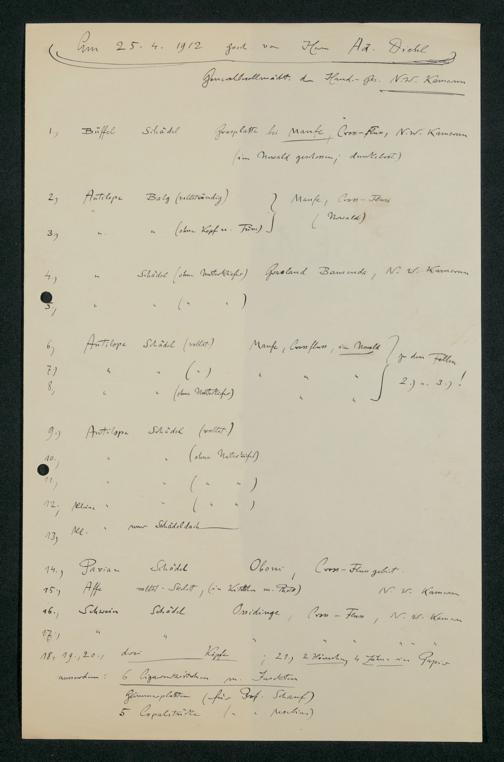 Am 25. 4. 1912 von Herrn Ad. Diehl
Generalbevollmächt. der Handl. Ges. N.W. Kamerun
1., Büffel Schädel Grasplatte bei Manfe, Cross-Fluss, N.W. Kamerun
(im Urwald geschossen; dunkelrot)
2., Antilope Balg (vollständig) Manfe, Cross-Fluss
3., " " (ohne Kopf u. ) (Urwald)
4., " Schädel (ohne Unterkiefer) Grasland Bamenda, N.W. Kamerun
5., " " ( " " )
6., Antilope Schädel (vollst.) Manfe, Crossfluss, im Urwald zu den Fellen
7.) " " ( " ) " " " 2.) u. 3.) !
8., " " (ohne Unterkiefer) " "
9., Antilope Schädel (vollst.)
10., " " (ohne Unterkiefer)
11., " " ( " " )
12., kleine " " ( " " )
13., kl. " nur Schädeldach
14., Pavian Schädel Oboni, Cross-Flussgebiet.
15., Affe (in Kistchen m. ) N.W. Kamerun
16., Schwein Schädel Ossidinge, Cross-Fluss, N.W. Kamerun
17., " " " " " " "
18., 19., 20., drei Köpfe ; 21., 2 4 Papier
ausserdem: 6 m. Insekten
(für Prof. Schauf)
5 Copalstücke ( " " )